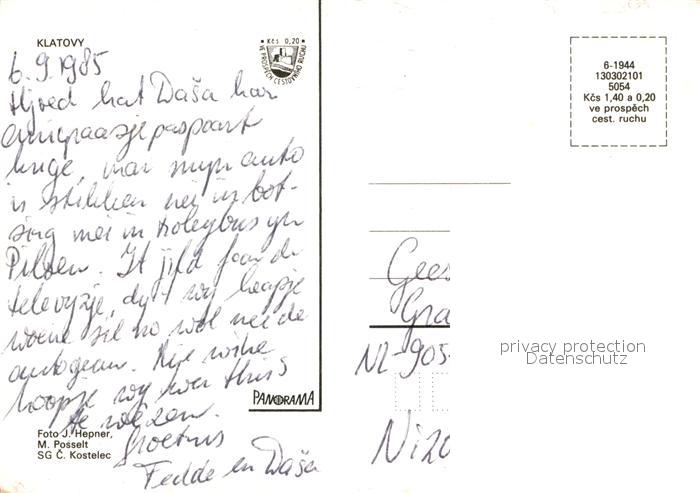 KLATOVY
• Kčs 0,20 •
VE PROSPĚCH CESTOVNÍHO RUCHU
6.9.1985
Hjoed hat Daša har
paspoart
krige, mar myn auto
is stikken nei in bot-
sing mei in trolleybus yn
Pilsen. It jild foar de
televyzje, dy't wy keapje
woene sil no wol nei de
autogean. Nije wike
hoopje wy wer thús
te wêzen.
Groetnis
Fedde en Daša
PANORAMA
Foto J. Hepner,
M. Posselt
SG Č. Kostelec
6-1944
130302101
5054
Kčs 1,40 a 0,20
ve prospěch
cest. ruchu
Gees
Gra
NL-905
Nizo
privacy protection
Datenschutz